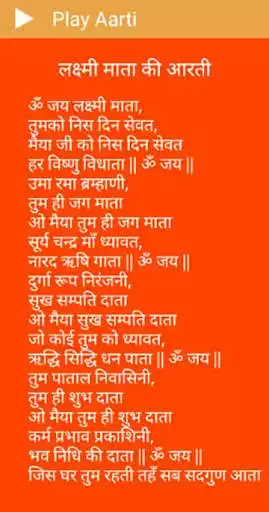 Play Aarti
लक्ष्मी माता की आरती
ॐ जय लक्ष्मी माता,
तुमको निस दिन सेवत,
मैया जी को निस दिन सेवत
हर विष्णु विधाता || ॐ जय ||
उमा रमा ब्रम्हाणी,
तुम ही जग माता
ओ मैया तुम ही जग माता
सूर्य चन्द्र माँ ध्यावत,
नारद ऋषि गाता || ॐ जय ||
दुर्गा रूप निरंजनी,
सुख सम्पति दाता
ओ मैया सुख सम्पति दाता
जो कोई तुम को ध्यावत,
ऋद्धि सिद्धि धन पाता || ॐ जय ||
तुम पाताल निवासिनी,
तुम ही शुभ दाता
ओ मैया तुम ही शुभ दाता
कर्म प्रभाव प्रकाशिनी,
भव निधि की दाता || ॐ जय ||
जिस घर तुम रहती तहँ सब सदगुण आता